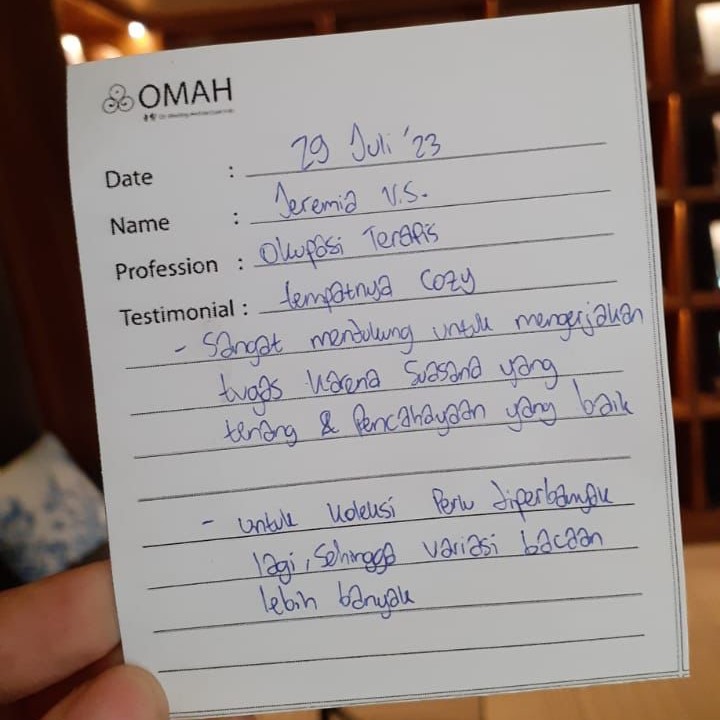 OMAH
Date : 29 Juli '23
Name : Jeremia V.S.
Profession : Okupasi Terapis
Testimonial : tempatnya cozy
- Sangat mendukung untuk mengerjakan
tugas karena suasana yang
tenang & Pencahayaan yang baik
- untuk koleksi Perlu diperbanyak
lagi, sehingga variasi bacaan
lebih banyak